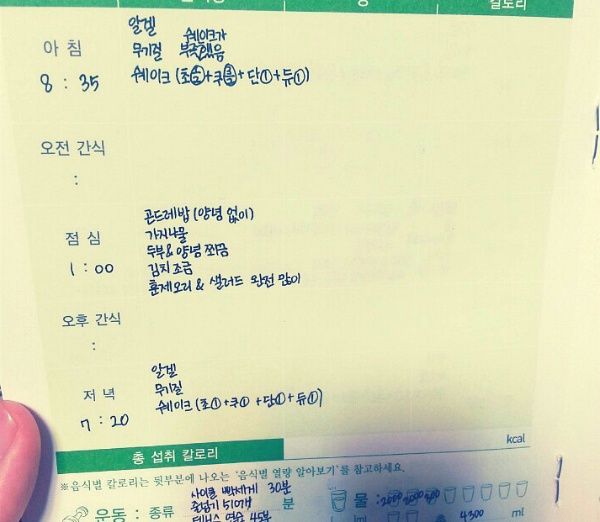 칼로리
아 침
8 : 35
알겔 쉐이크가
무기질 부족했음
쉐이크 (초+쿠+단①+듀①)
오전 간식
:
점 심
1 : 00
곤드레밥 (양념 없이)
가지나물
두부&양념 쬐끔
김치 조금
훈제오리 & 샐러드 완전 많이
오후 간식
:
저 녁
7 : 20
알겔
무기질
쉐이크 (초①+쿠①+단①+듀①)
총 섭취 칼로리
kcal
※음식별 칼로리는 뒷부분에 나오는 '음식별 열량 알아보기'를 참고하세요.
운동 : 종류
사이클 빡세게 30분
줄넘기 510개
테니스 연습 45분
분
물 :
4300 ml